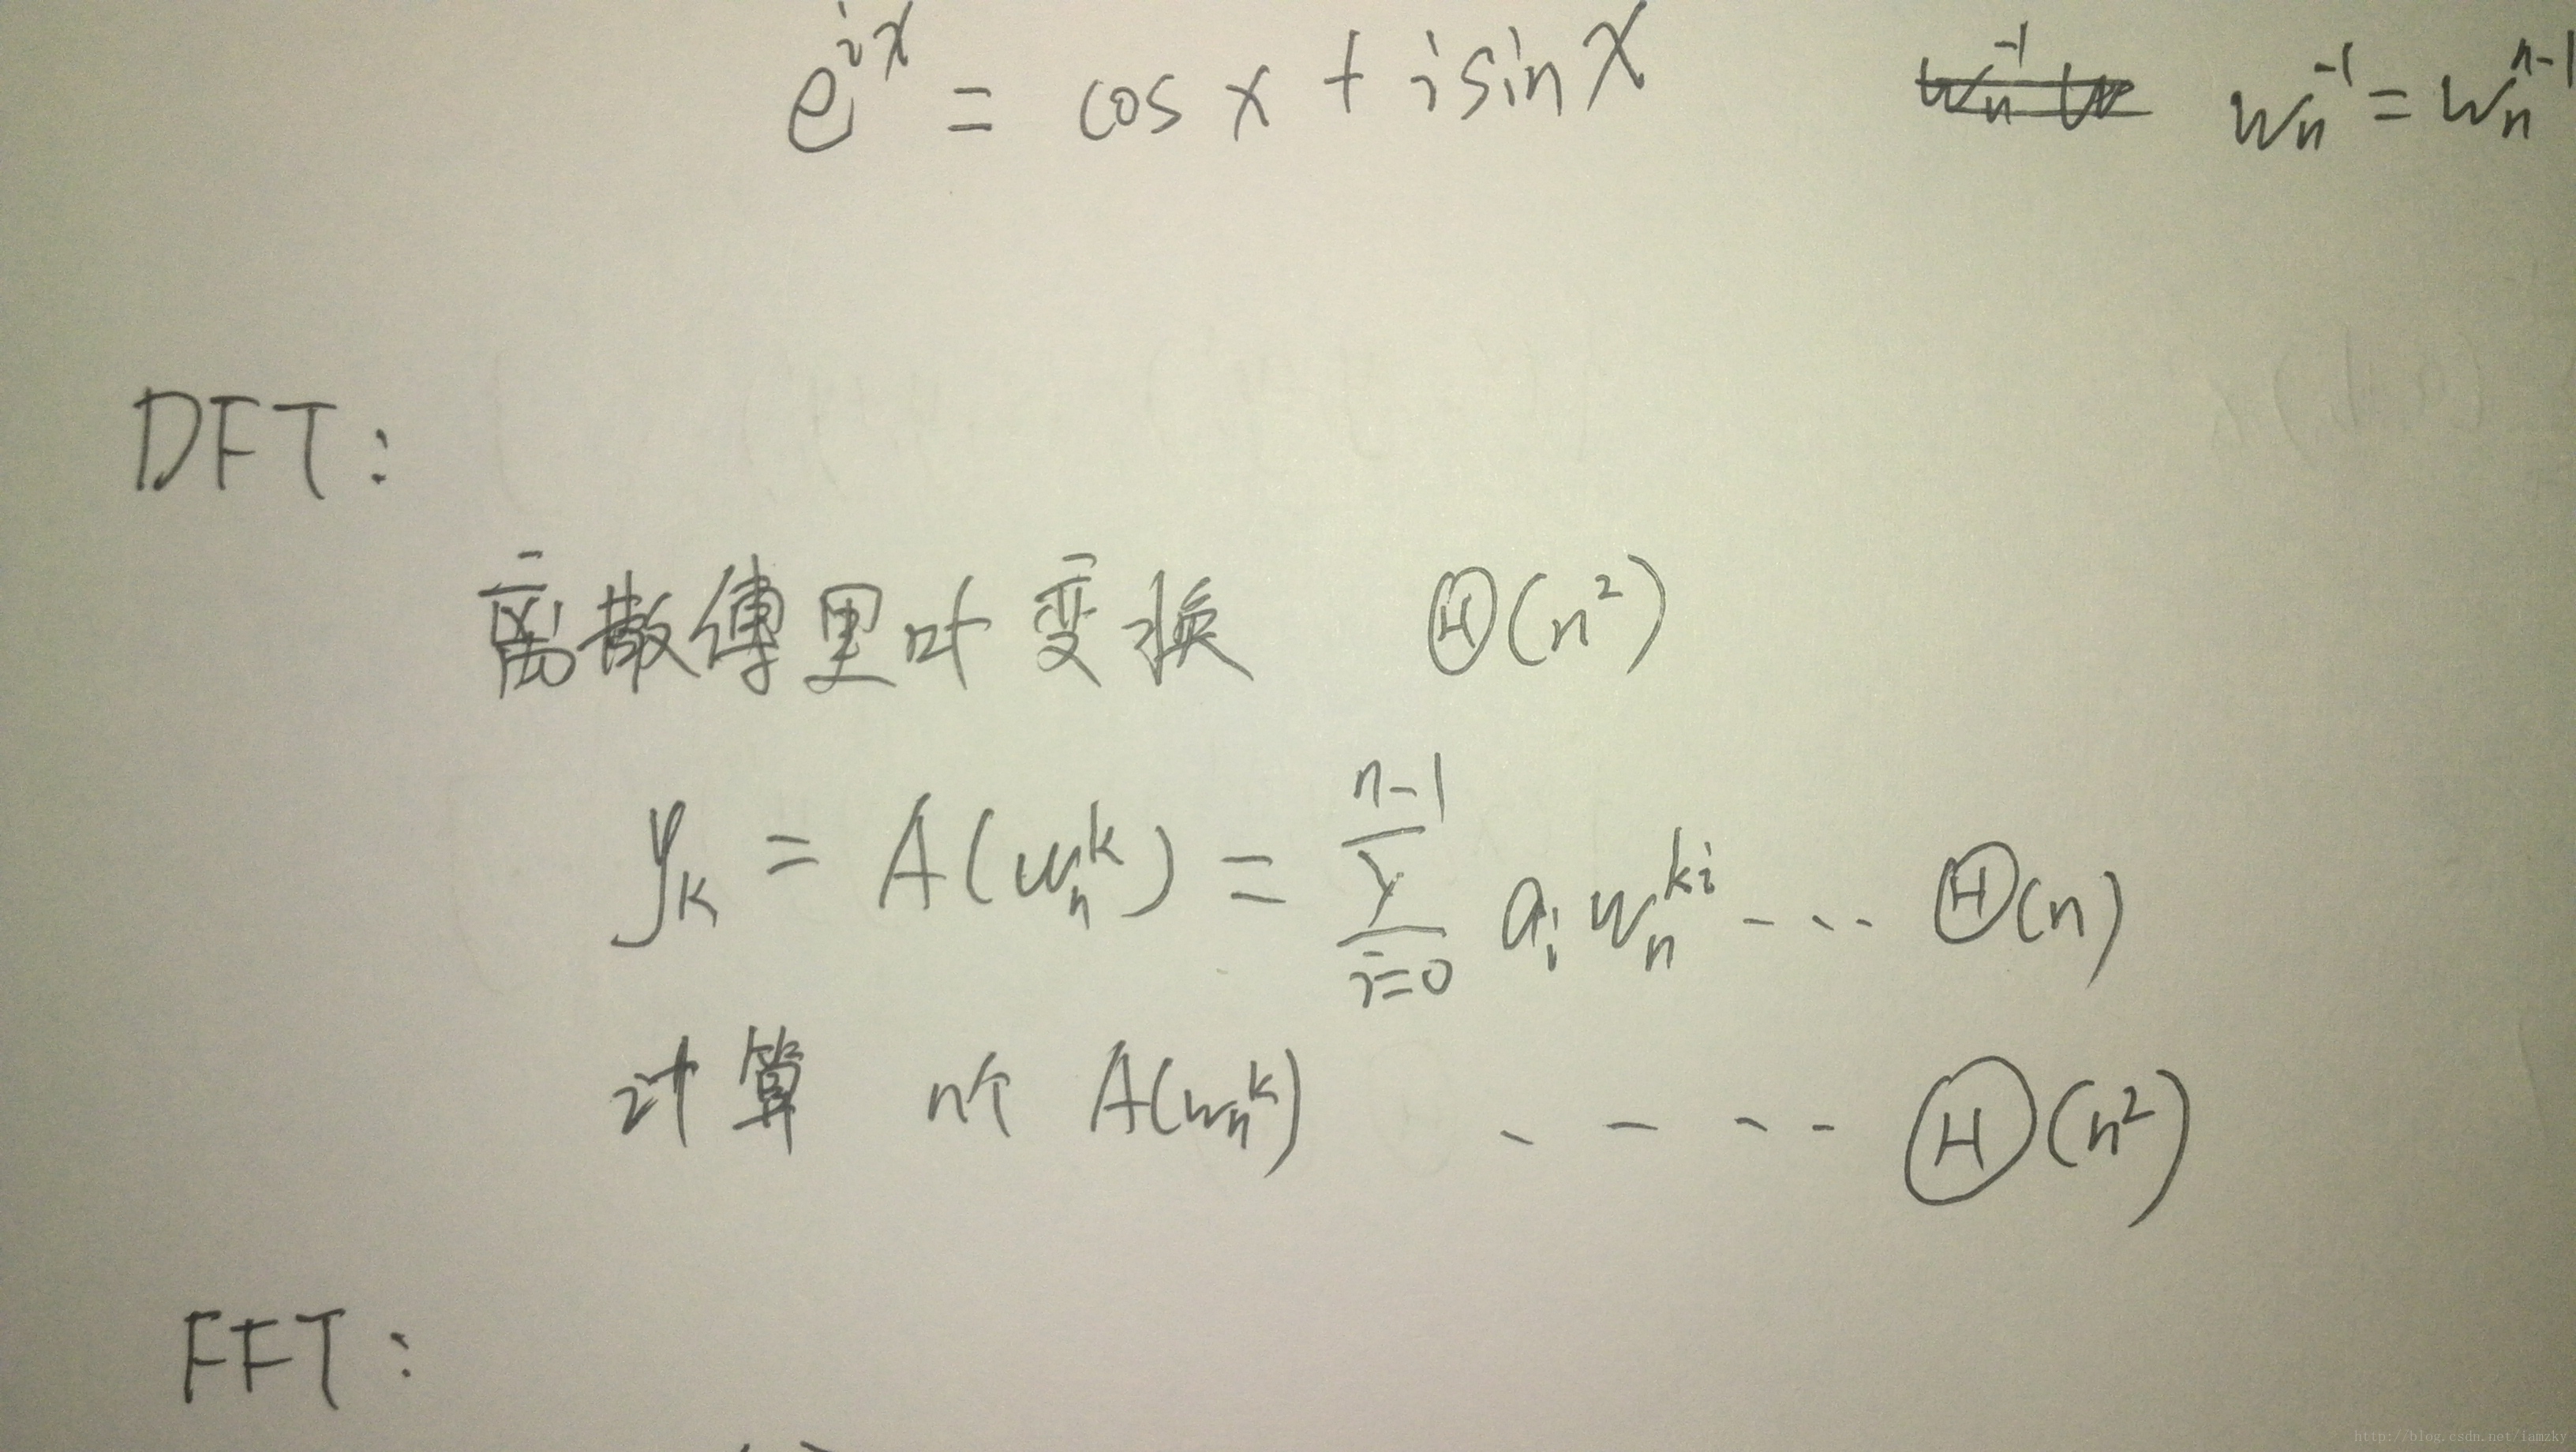 e^{ix} = cos x + i sin x    w_n^{-1} w    w_n^{-1} = w_n^{n-1}
DFT:
离散傅里叶变换 Θ(n²)
y_k = A(w_n^k) = \sum_{i=0}^{n-1} a_i w_n^{ki} ---- Θ(n)
计算 n个 A(w_n^k) ----- Θ(n²)
FFT:
http://blog.csdn.net/iamzky